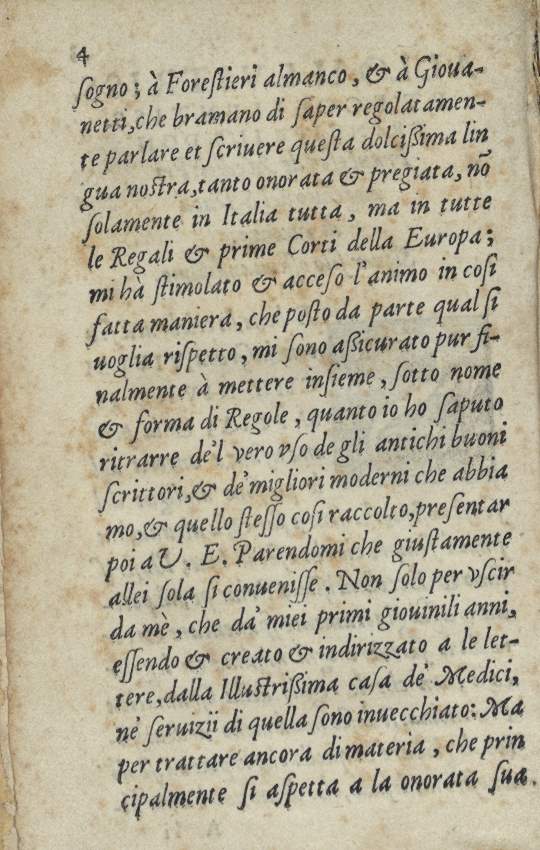 4
ſogno; à Foreſtieri almanco, & à Gioua-
netti, che bramano di ſaper regolatamen-
te parlare et ſcriuere queſta dolciſſima lin
gua noſtra, tanto onorata & pregiata, nõ
ſolamente in Italia tutta, ma in tutte
le Regali & prime Corti della Europa;
mi hà ſtimolato & acceſo l'animo in coſi
fatta maniera, che poſto da parte qual ſi
uoglia riſpetto, mi ſono aſſicurato pur fi-
nalmente à mettere inſieme, ſotto nome
& forma di Regole, quanto io ho ſaputo
ritrarre de'l vero vſo de gli antichi buoni
ſcrittori, & de' migliori moderni che abbia
mo, & quello ſteſſo coſi raccolto, preſentar
poi a V. E. Parendomi che giuſtamente
allei ſola ſi conueniſſe. Non ſolo per vſcir
da mè, che da' miei primi giouinili anni,
eſſendo & creato & indirizzato a le let-
tere, dalla Illuſtriſſima caſa de' Medici,
ne' ſeruizii di quella ſono inuecchiato: Ma
per trattare ancora di materia, che prin
cipalmente ſi aſpetta a la onorata ſua